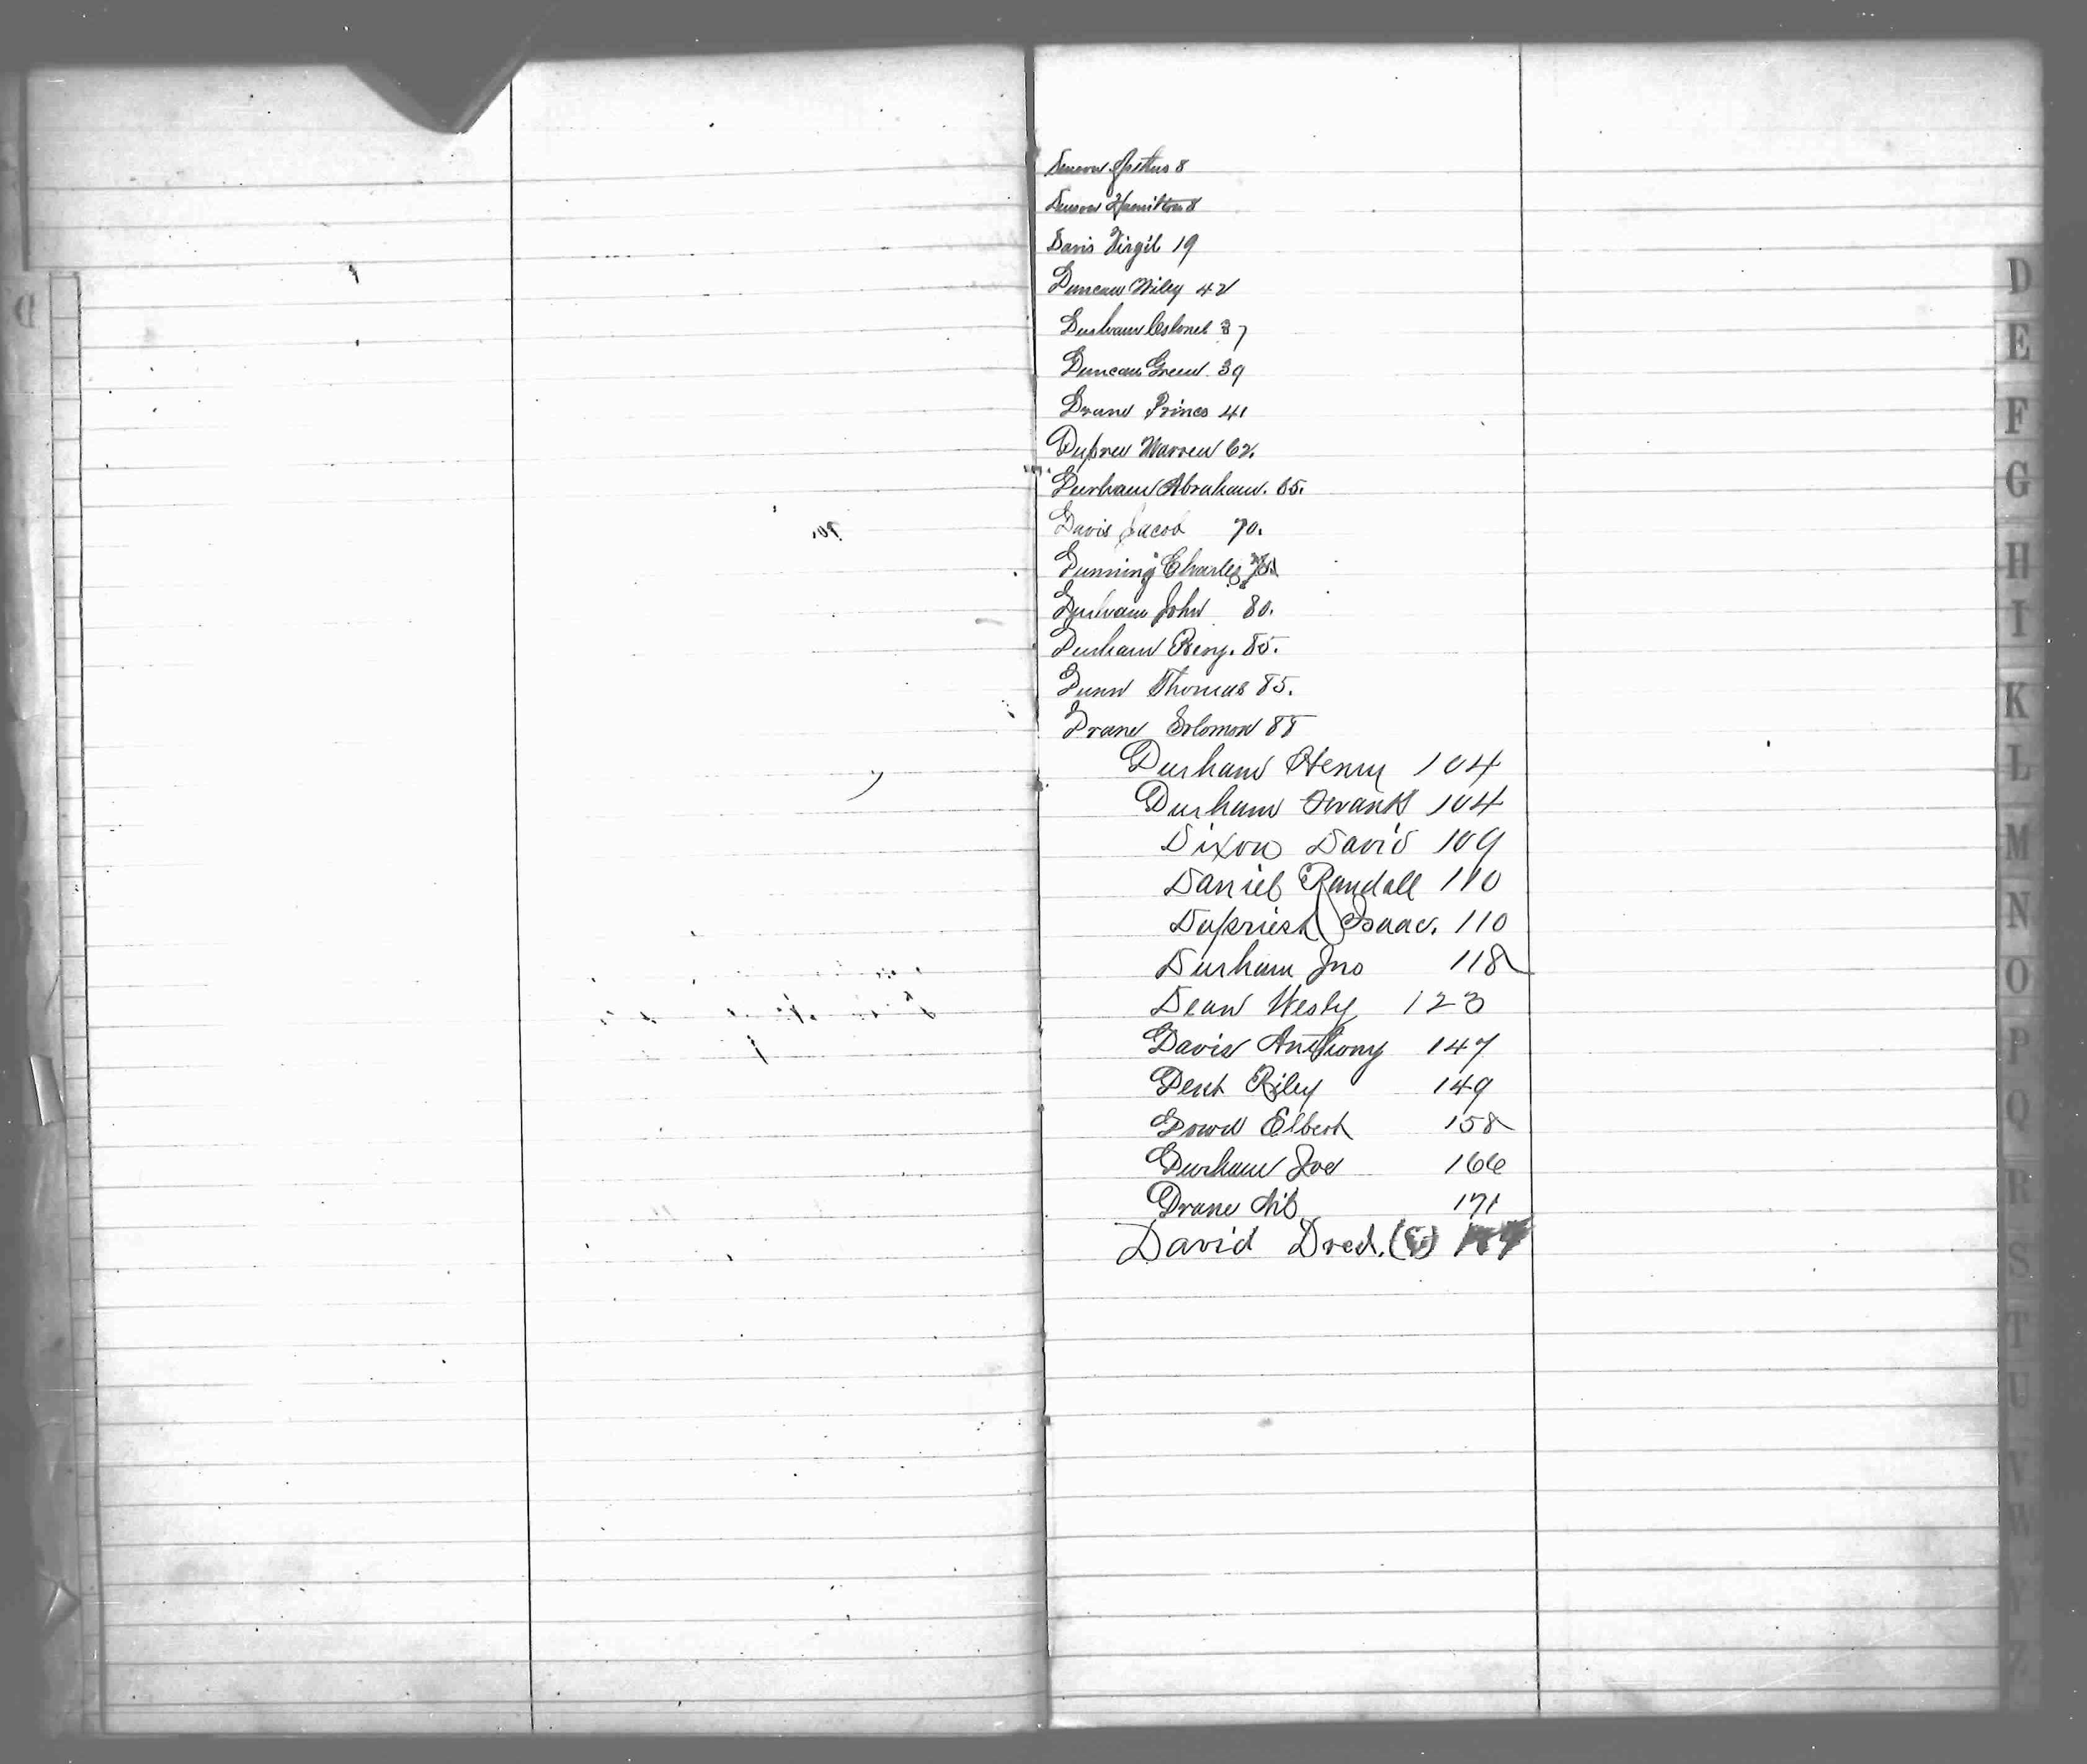 Denson 8
Denson Hamilton 8
Davis Virgil 19
Duncan Wiley 42
Durham Colonel 37
Duncan Green. 39
Drane Prince 41
Dupree Warren 62.
Durham Abraham. 65.
Davis Jacob 70.
Dunning Charles
Durham John 80.
Durham Beny. 85.
Dunn Thomas 85.
Drane Solomon 88
Durham Henry 104
Durham Frank 104
Dixon David 109
Daniel Randall 110
Dupriest Isaac. 110
Durham Jno 118
Dean Wesly 123
Davis Anthony 147
Dent Riley 149
Dowd Elbert 158
Durham Joe 166
Drane 171
David Dred.
D
E
F
G
H
I
K
L
M
N
O
P
Q
R
S
T
U
V
W
Y
Z